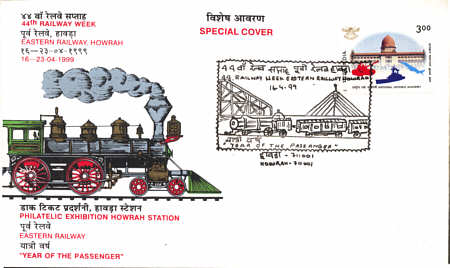 ४४ वाँ रेलवे सप्ताह
44th RAILWAY WEEK
पूर्व रेलवे, हावड़ा
EASTERN RAILWAY, HOWRAH
१६-२३-०४-१९९९
16-23-04-1999
विशेष आवरण
SPECIAL COVER
3.00
४४ वाँ रेल्वे सप्ताह पूर्वी रेल्वे हावड़ा
44 RAILWAY WEEK EASTERN RAILWAY HOWRAH
16.4.99
यात्री वर्ष
"YEAR OF THE PASSENGER"
हावड़ा - 711001
HOWRAH - 711001
डाक टिकट प्रदर्शनी, हावड़ा स्टेशन
PHILATELIC EXHIBITION HOWRAH STATION
पूर्व रेलवे
EASTERN RAILWAY
यात्री वर्ष
"YEAR OF THE PASSENGER"